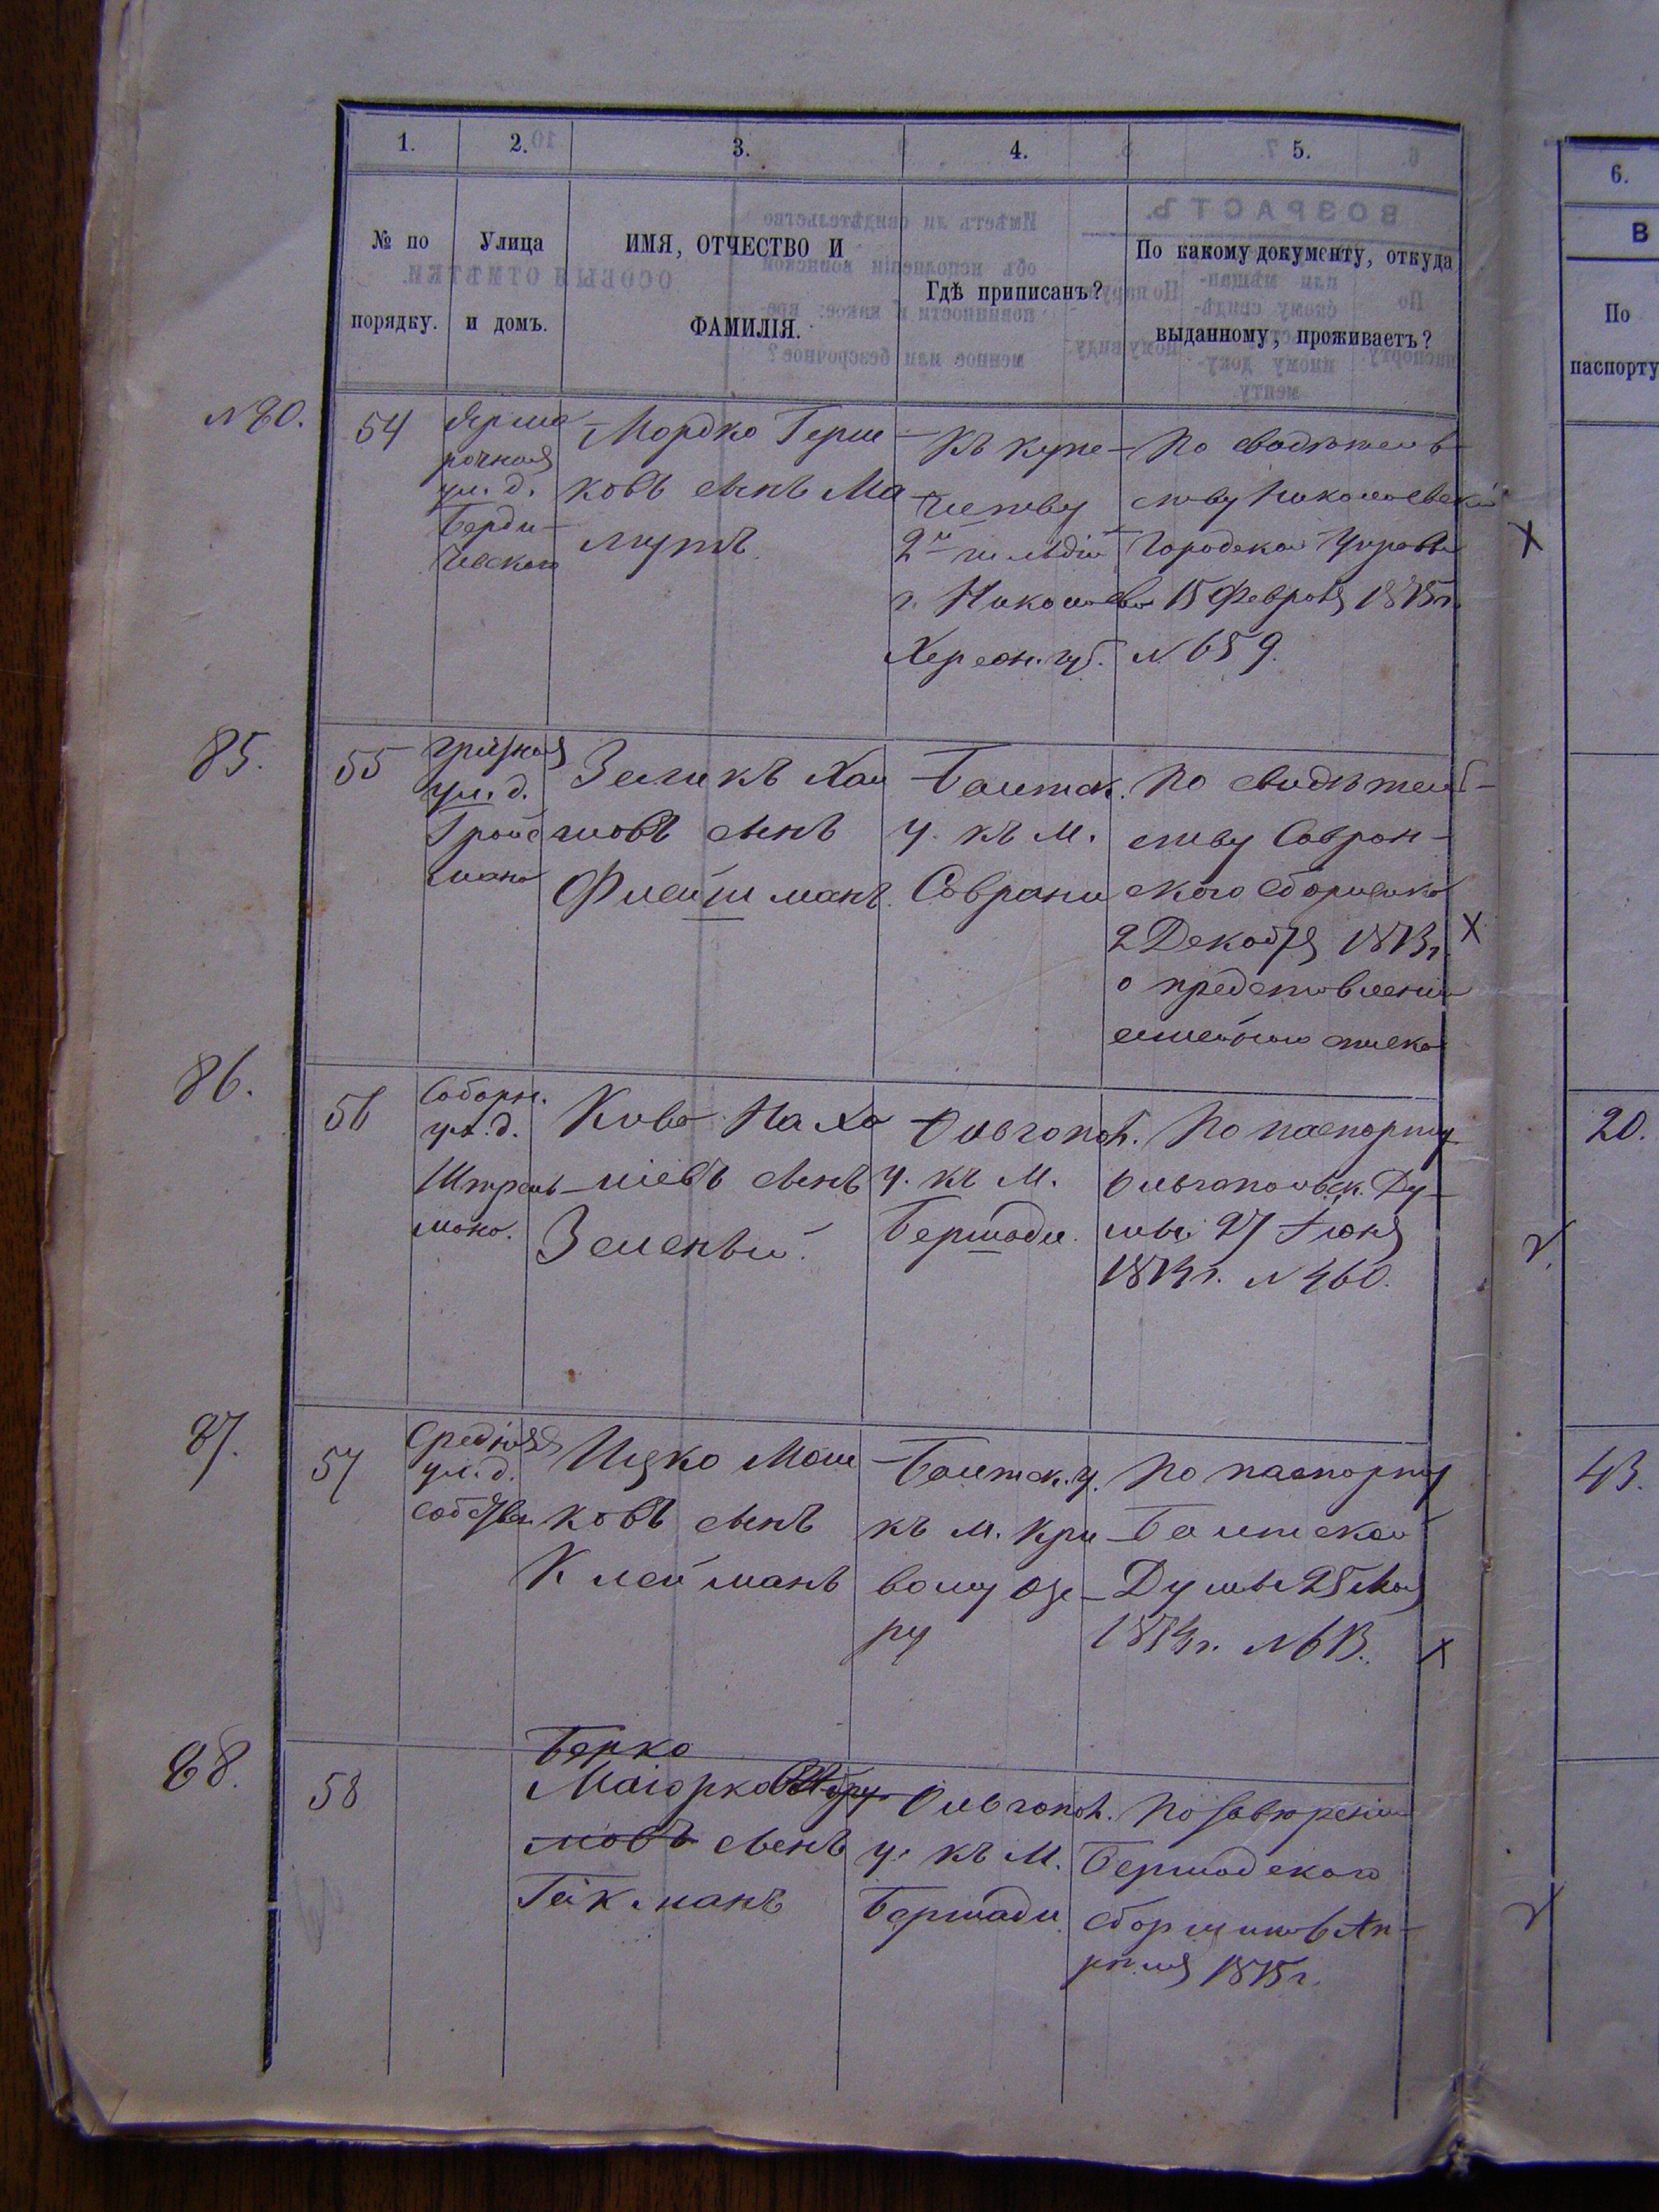 1. 2. 3. 4. 5. 6.
№ по порядку.
Улица и домъ.
ИМЯ, ОТЧЕСТВО И ФАМИЛІЯ.
Гдѣ приписанъ?
По какому документу, откуда выданному, проживаетъ?
В
По паспорту
54
Ярма
рочная
ул. д.
Берди-
чевскаго
Мордко Герш
ковъ сынъ Ма
Къ купе-
честву
2й гильдіи
г. Николаева
Херсон. губ.
По свидѣтель-
ству Николаевской
Городской Управы
15 Февраля 1875 г.
№ 659.
85.
55
ул. д.
Гройс
мана
Зеликъ Хаи
мовъ сынъ
Флейшманъ.
Балтск.
у. къ м.
Саврани
По свидѣтель-
ству Савран-
скаго сборщика
2 Декабря 1873 г.
о представленіи
семейнаго списка
86.
56
Соборн.
ул. д.
Штраль-
мана.
Кива Наха
міевъ сынъ
Зеленый.
Ольгопол.
у. къ м.
Бершади.
По паспорту
Ольгопольск. Ду-
мы 27 Іюня
1874 г. № 460.
20.
87.
57
Средняя
ул. д.
собств.
Ицко Мош
ковъ сынъ
Клейманъ
Балтск. у.
къ м. Кри
вому Озе-
ру
По паспорту
Балтской
Думы 25 Мая
1874 г. № 613.
43.
88.
58
Берко
Маіорковъ
мовъ сынъ
Гакманъ
Ольгопол.
у. къ м.
Бершади
По завѣренію
Бершадскаго
сборщика 6 Ап-
рѣля 1875 г.